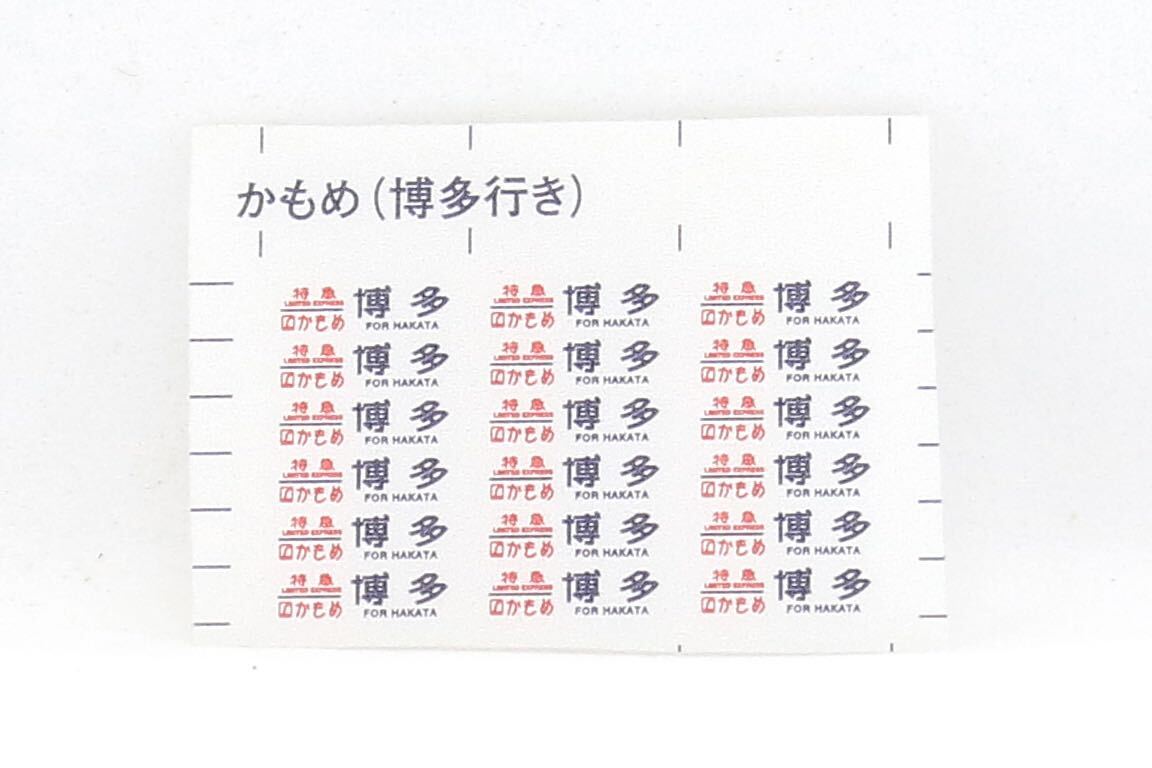 かもめ(博多行き)
特急 LIMITED EXPRESS かもめ 博多 FOR HAKATA 特急 LIMITED EXPRESS かもめ 博多 FOR HAKATA 特急 LIMITED EXPRESS かもめ 博多 FOR HAKATA
特急 LIMITED EXPRESS かもめ 博多 FOR HAKATA 特急 LIMITED EXPRESS かもめ 博多 FOR HAKATA 特急 LIMITED EXPRESS かもめ 博多 FOR HAKATA
特急 LIMITED EXPRESS かもめ 博多 FOR HAKATA 特急 LIMITED EXPRESS かもめ 博多 FOR HAKATA 特急 LIMITED EXPRESS かもめ 博多 FOR HAKATA
特急 LIMITED EXPRESS かもめ 博多 FOR HAKATA 特急 LIMITED EXPRESS かもめ 博多 FOR HAKATA 特急 LIMITED EXPRESS かもめ 博多 FOR HAKATA
特急 LIMITED EXPRESS かもめ 博多 FOR HAKATA 特急 LIMITED EXPRESS かもめ 博多 FOR HAKATA 特急 LIMITED EXPRESS かもめ 博多 FOR HAKATA
特急 LIMITED EXPRESS かもめ 博多 FOR HAKATA 特急 LIMITED EXPRESS かもめ 博多 FOR HAKATA 特急 LIMITED EXPRESS かもめ 博多 FOR HAKATA